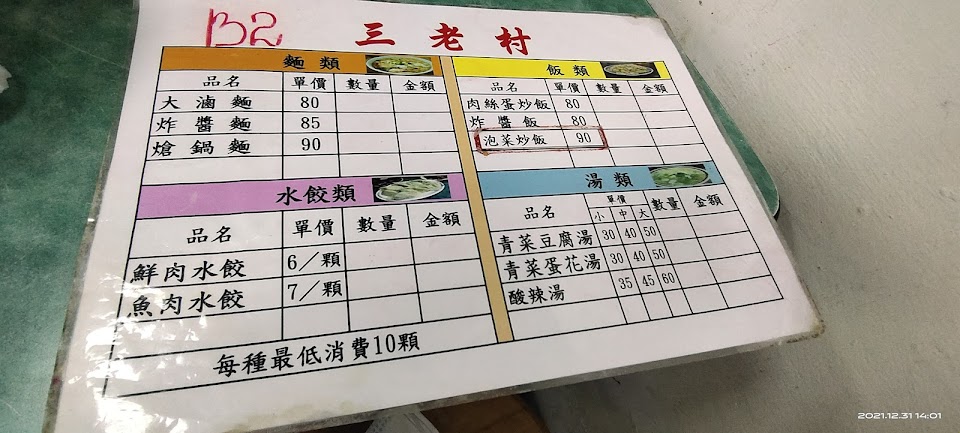 B2
三老村
麵類
品名 單價 數量 金額
大滷麵 80
炸醬麵 85
熗鍋麵 90
飯類
品名 單價 數量 金額
肉絲蛋炒飯 80
炸醬飯 80
泡菜炒飯 90
水餃類
品名 單價 數量 金額
鮮肉水餃 6／顆
魚肉水餃 7／顆
每種最低消費10顆
湯類
品名 單價 數量 金額
小 中 大
青菜豆腐湯 30 40 50
青菜蛋花湯 30 40 50
酸辣湯 35 45 60
2021.12.31 14:01